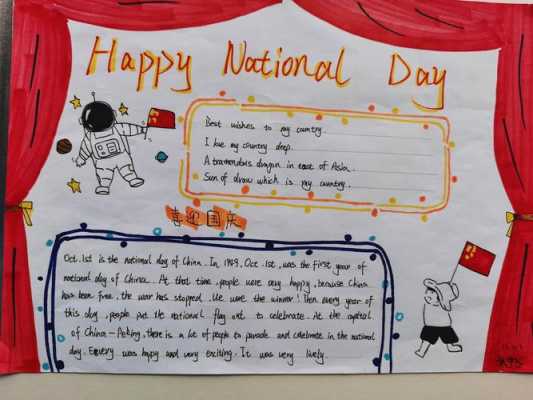 Happy National Day
Best wishes to my country.
I love my country deep.
A tramendous dragon in east of Asia.
Sun of draw which is my country.
喜迎国庆
Oct. 1st is the national day of China. In 1949. Oct. 1st, was the first year of
national day of China. At that time, people were very happy, because China
has been free, the war has stopped. We were the winner! Then every year of
this day, people put the national flag out to celebrate. At the capital
of China - Peking, there is a lot of people to parade and celebrate in the national
day. Every was happy and very exciting. It was very lively.